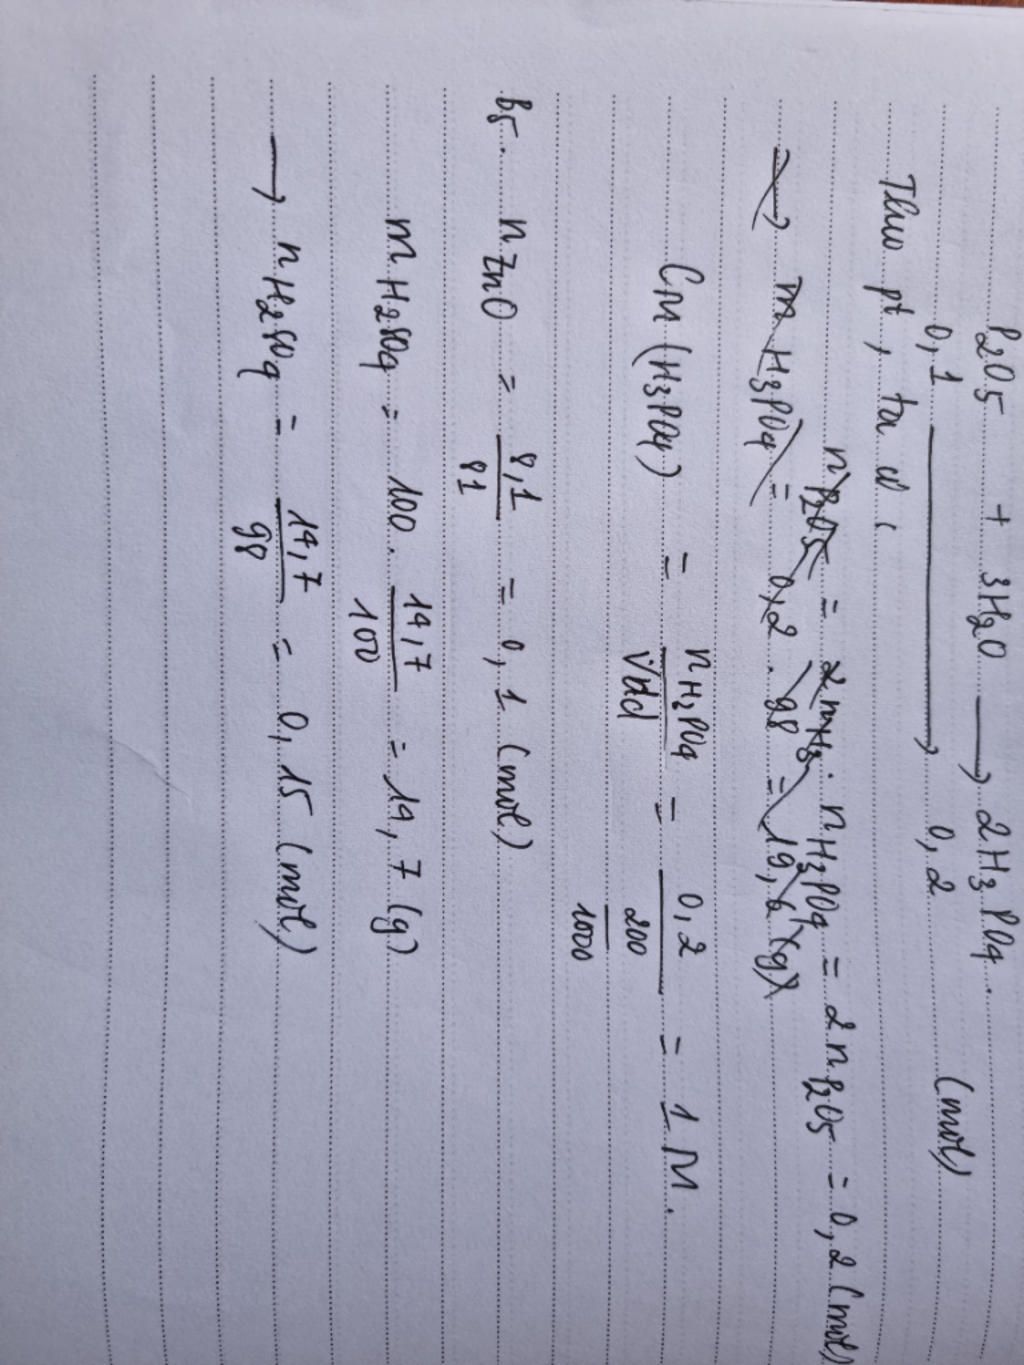 P2O5 + 3H2O → 2H3PO4.
0,1 → 0,2 (mol)
Theo pt, ta có:
nP2O5 = 2nH3. nH3PO4 = 2nP2O5 = 0,2 (mol)
→ mH3PO4 = 0,2 . 98 = 19,6 (g)
CM (H3PO4) = nH3PO4 / Vdd = 0,2 / (200/1000) = 1 M.
B5. nZnO = 8,1/81 = 0,1 (mol)
mH2SO4 = 100 . 14,7/100 = 14,7 (g)
→ nH2SO4 = 14,7/98 = 0,15 (mol)